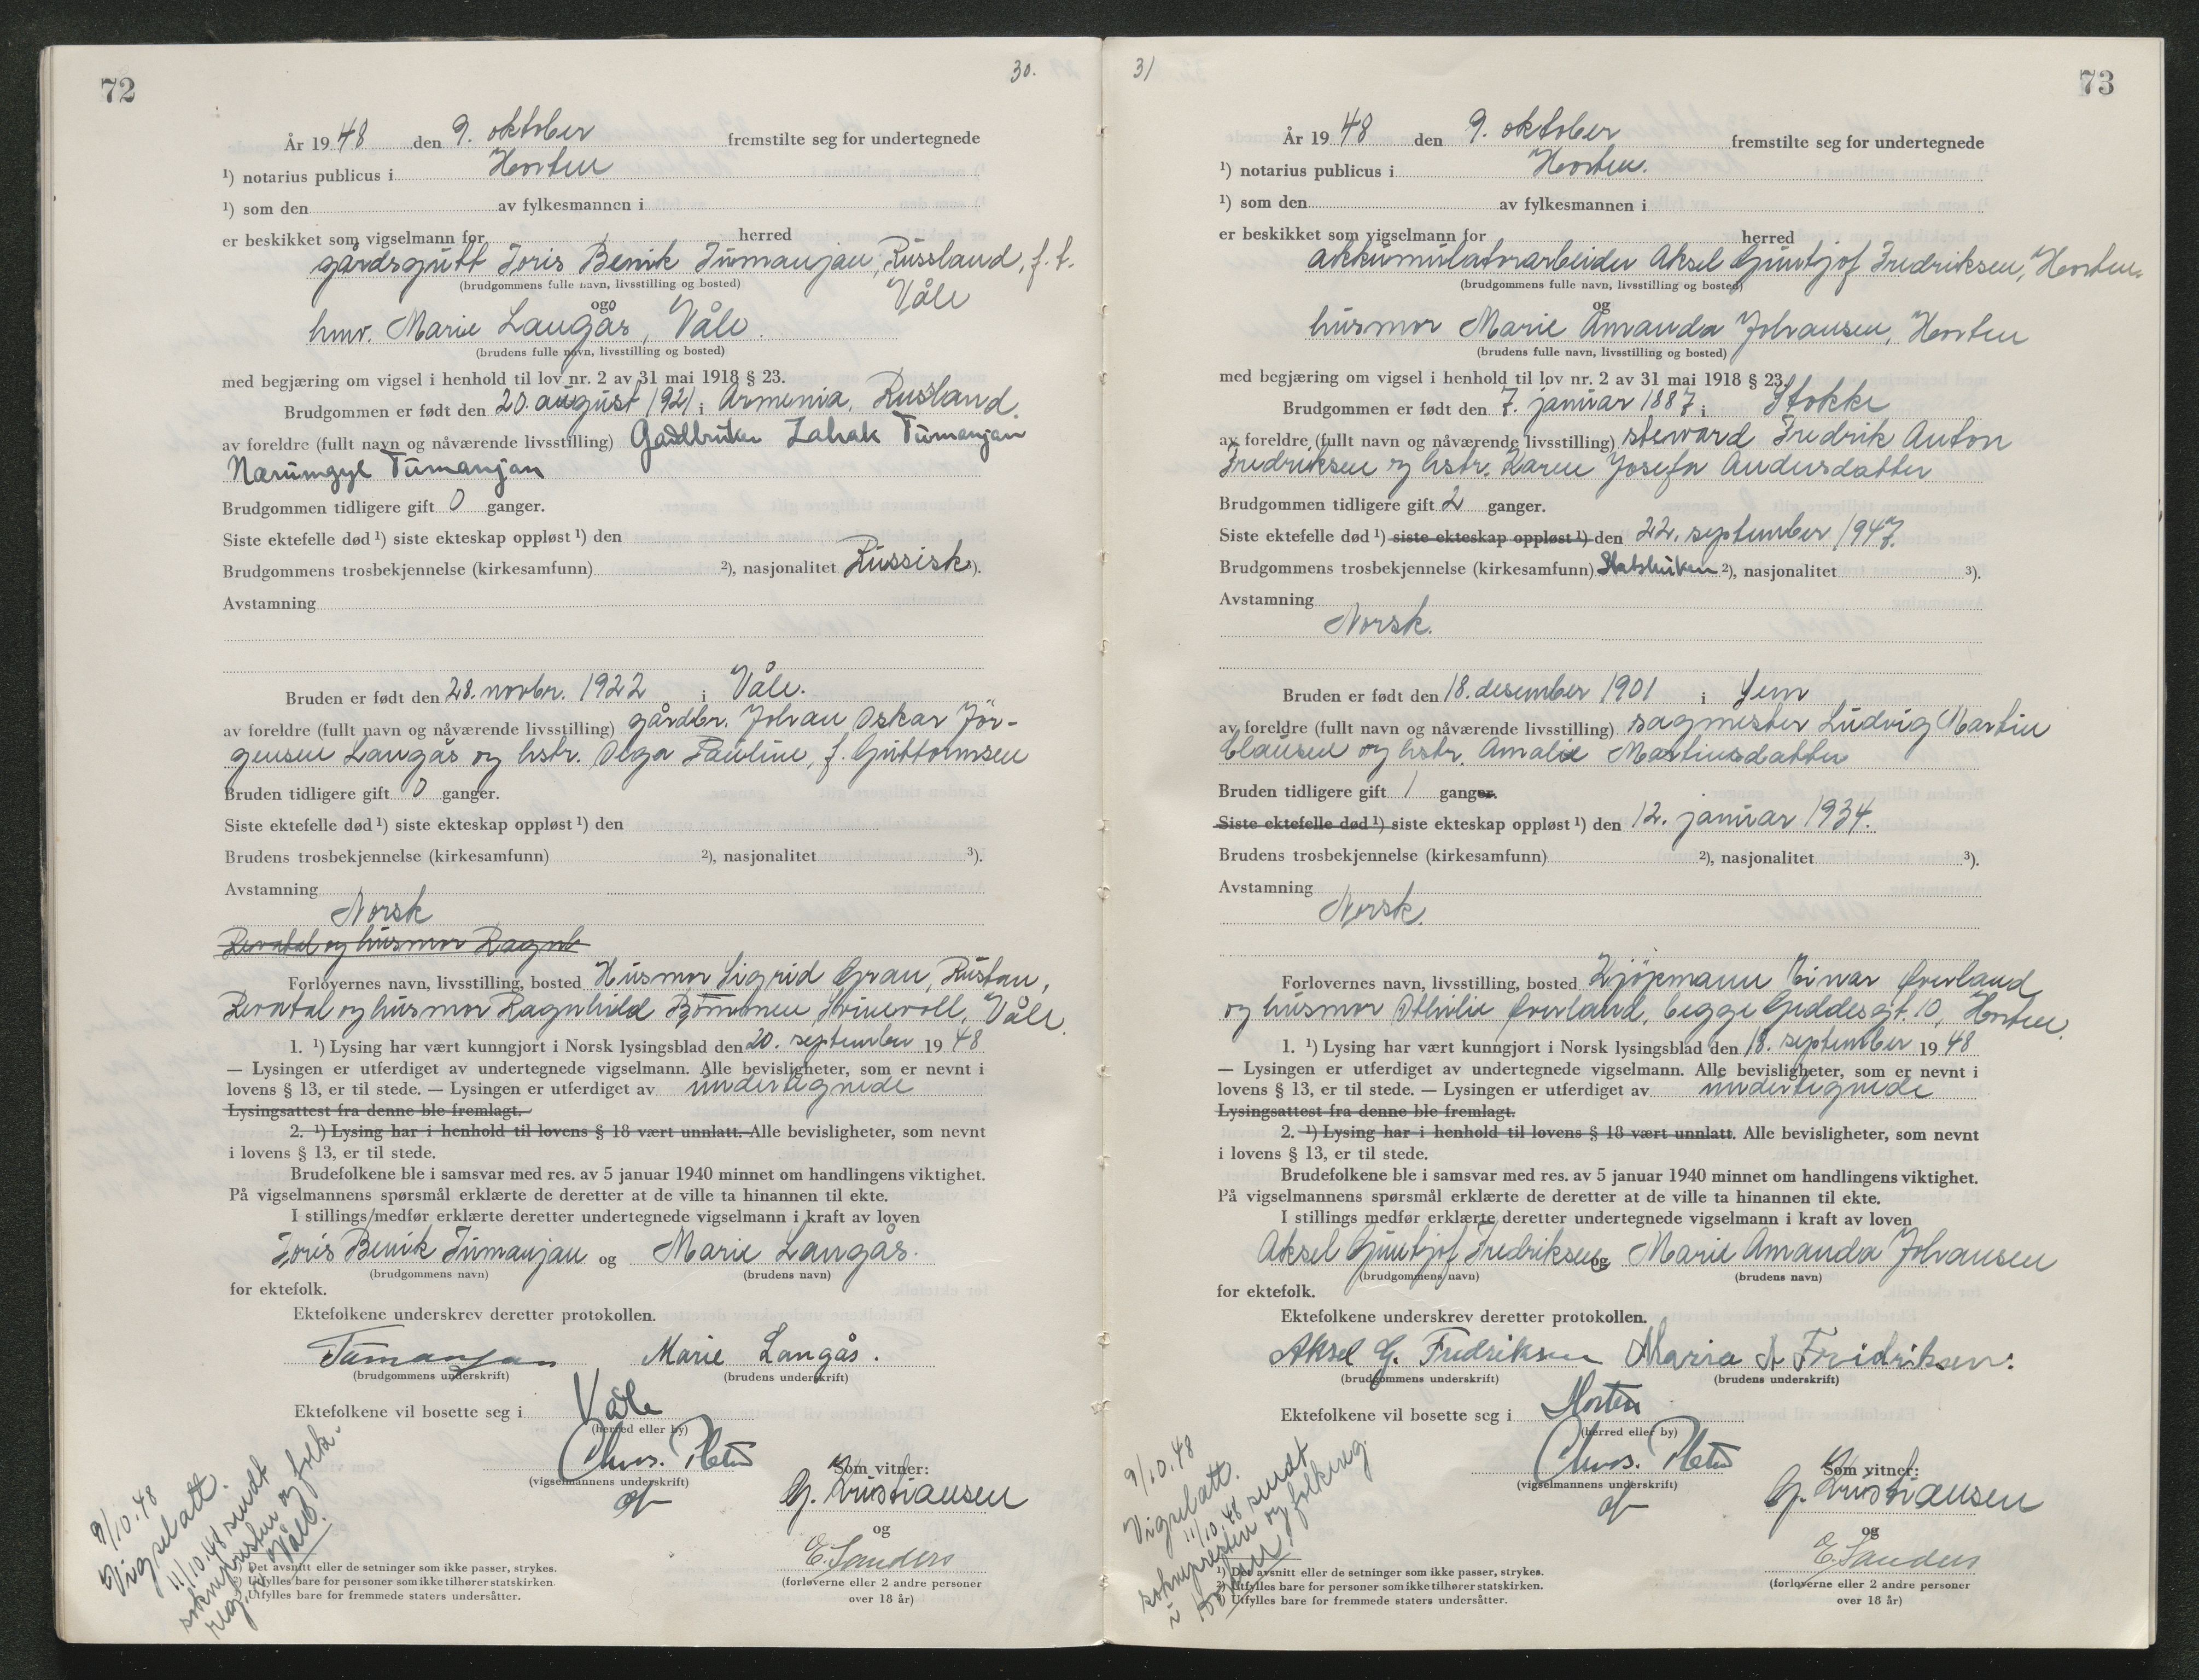 72
30.
År 1948 den 9. oktober fremstilte seg for undertegnede
¹) notarius publicus i Horten
¹) som den av fylkesmannen i
er beskikket som vigselmann for herred
gårdsgutt Joris Benik Tumanjan, Russland, f.t.
(brudgommens fulle navn, livsstilling og bosted) Våle
og
hmv. Marie Langås, Våle.
(brudens fulle navn, livsstilling og bosted)
med begjæring om vigsel i henhold til lov nr. 2 av 31 mai 1918 § 23.
Brudgommen er født den 20. august 1921 i Armenia, Rusland.
av foreldre (fullt navn og nåværende livsstilling) Gardbruker Zahak Tumanjan
Narumgyl Tumanjan
Brudgommen tidligere gift 0 ganger.
Siste ektefelle død ¹) siste ekteskap oppløst ¹) den
Brudgommens trosbekjennelse (kirkesamfunn) ²), nasjonalitet Russisk ³).
Avstamning
Bruden er født den 28. novbr. 1922 i Våle.
av foreldre (fullt navn og nåværende livsstilling) gårdbr. Johan Oskar Jör-
gensen Langås og hstr. Olga Pauline, f. Guttormsen
Bruden tidligere gift 0 ganger.
Siste ektefelle død ¹) siste ekteskap oppløst ¹) den
Brudens trosbekjennelse (kirkesamfunn) ²), nasjonalitet ³).
Avstamning
Norsk
Revatal og husmor Ragnh
Forlovernes navn, livsstilling, bosted Husmor Sigrid Gran, Rustan,
Revatal og husmor Ragnhild Bjömmen, Våle.
1. ¹) Lysing har vært kunngjort i Norsk lysingsblad den 20. september 1948
— Lysingen er utferdiget av undertegnede vigselmann. Alle bevisligheter, som er nevnt i
lovens § 13, er til stede. — Lysingen er utferdiget av undertegnede
Lysingsattest fra denne ble fremlagt.
2. ¹) Lysing har i henhold til lovens § 18 vært unnlatt. Alle bevisligheter, som nevnt
i lovens § 13, er til stede.
Brudefolkene ble i samsvar med res. av 5 januar 1940 minnet om handlingens viktighet.
På vigselmannens spørsmål erklærte de deretter at de ville ta hinannen til ekte.
I stillings/medfør erklærte deretter undertegnede vigselmann i kraft av loven
Joris Benik Tumanjan og Marie Langås.
(brudgommens navn) (brudens navn)
for ektefolk.
Ektefolkene underskrev deretter protokollen.
Tumanjan Marie Langås.
(brudgommens underskrift) (brudens underskrift)
Ektefolkene vil bosette seg i Våle
(herred eller by)
Chr. Platou
(vigselmannens underskrift)
Som vitner:
G. Kristiansen
og
E. Sanders
(forloverne eller 2 andre personer
over 18 år)
9/10.48
Vigselatt.
11/10.48 sendt
sokneprester og folk-
reg. i Våle.
¹) Det avsnitt eller de setninger som ikke passer, strykes.
²) Utfylles bare for personer som ikke tilhører statskirken.
³) Utfylles bare for fremmede staters undersåtter.
31
73
År 1948 den 9. oktober fremstilte seg for undertegnede
¹) notarius publicus i Horten.
¹) som den av fylkesmannen i
er beskikket som vigselmann for herred
akkumulatorarbeider Aksel Guntjof Fredriksen, Horten.
(brudgommens fulle navn, livsstilling og bosted)
og
husmor Marie Amanda Johansen, Horten
(brudens fulle navn, livsstilling og bosted)
med begjæring om vigsel i henhold til lov nr. 2 av 31 mai 1918 § 23.
Brudgommen er født den 7. januar 1887 i Stokke
av foreldre (fullt navn og nåværende livsstilling) steward Fredrik Anton
Fredriksen og hstr. Karen Josefa Andersdatter
Brudgommen tidligere gift 2 ganger.
Siste ektefelle død ¹) siste ekteskap oppløst ¹) den 22. september 1947.
Brudgommens trosbekjennelse (kirkesamfunn) Statskirken ²), nasjonalitet ³).
Avstamning
Norsk.
Bruden er født den 18. desember 1901 i Sem
av foreldre (fullt navn og nåværende livsstilling) sagmester Ludvig Martin
Clausen og hstr. Amalie Martinsdatter
Bruden tidligere gift 1 ganger.
Siste ektefelle død ¹) siste ekteskap oppløst ¹) den 12. januar 1934.
Brudens trosbekjennelse (kirkesamfunn) ²), nasjonalitet ³).
Avstamning
Norsk.
Forlovernes navn, livsstilling, bosted Kjöpmann Einar Överland
og husmor Othilie Överland, begge Geddesgt. 10, Horten.
1. ¹) Lysing har vært kunngjort i Norsk lysingsblad den 18. september 1948
— Lysingen er utferdiget av undertegnede vigselmann. Alle bevisligheter, som er nevnt i
lovens § 13, er til stede. — Lysingen er utferdiget av undertegnede
Lysingsattest fra denne ble fremlagt.
2. ¹) Lysing har i henhold til lovens § 18 vært unnlatt. Alle bevisligheter, som nevnt
i lovens § 13, er til stede.
Brudefolkene ble i samsvar med res. av 5 januar 1940 minnet om handlingens viktighet.
På vigselmannens spørsmål erklærte de deretter at de ville ta hinannen til ekte.
I stillings medfør erklærte deretter undertegnede vigselmann i kraft av loven
Aksel Guntjof Fredriksen og Marie Amanda Johansen
(brudgommens navn) (brudens navn)
for ektefolk.
Ektefolkene underskrev deretter protokollen.
Aksel G. Fredriksen Marie A Fredriksen.
(brudgommens underskrift) (brudens underskrift)
Ektefolkene vil bosette seg i Horten
(herred eller by)
Chr. Platou
(vigselmannens underskrift)
Som vitner:
G. Kristiansen
og
E. Sanders
(forloverne eller 2 andre personer
over 18 år)
9/10.48
Vigselatt.
11/10.48 sendt
sokneprester og folkereg.
i Horten.
¹) Det avsnitt eller de setninger som ikke passer, strykes.
²) Utfylles bare for personer som ikke tilhører statskirken.
³) Utfylles bare for fremmede staters undersåtter.